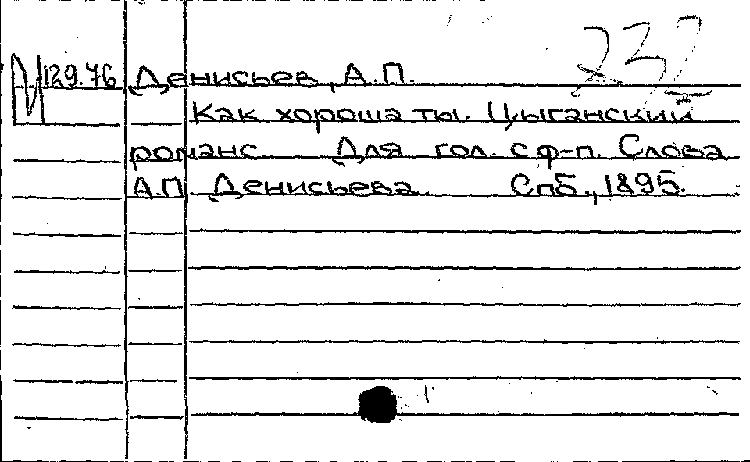 232
М 129.76 Денисьев, А.П.
Как хороша ты. Цыганский
романс Для гол. с ф-п. Слова
А.П. Денисьева. Спб., 1895.